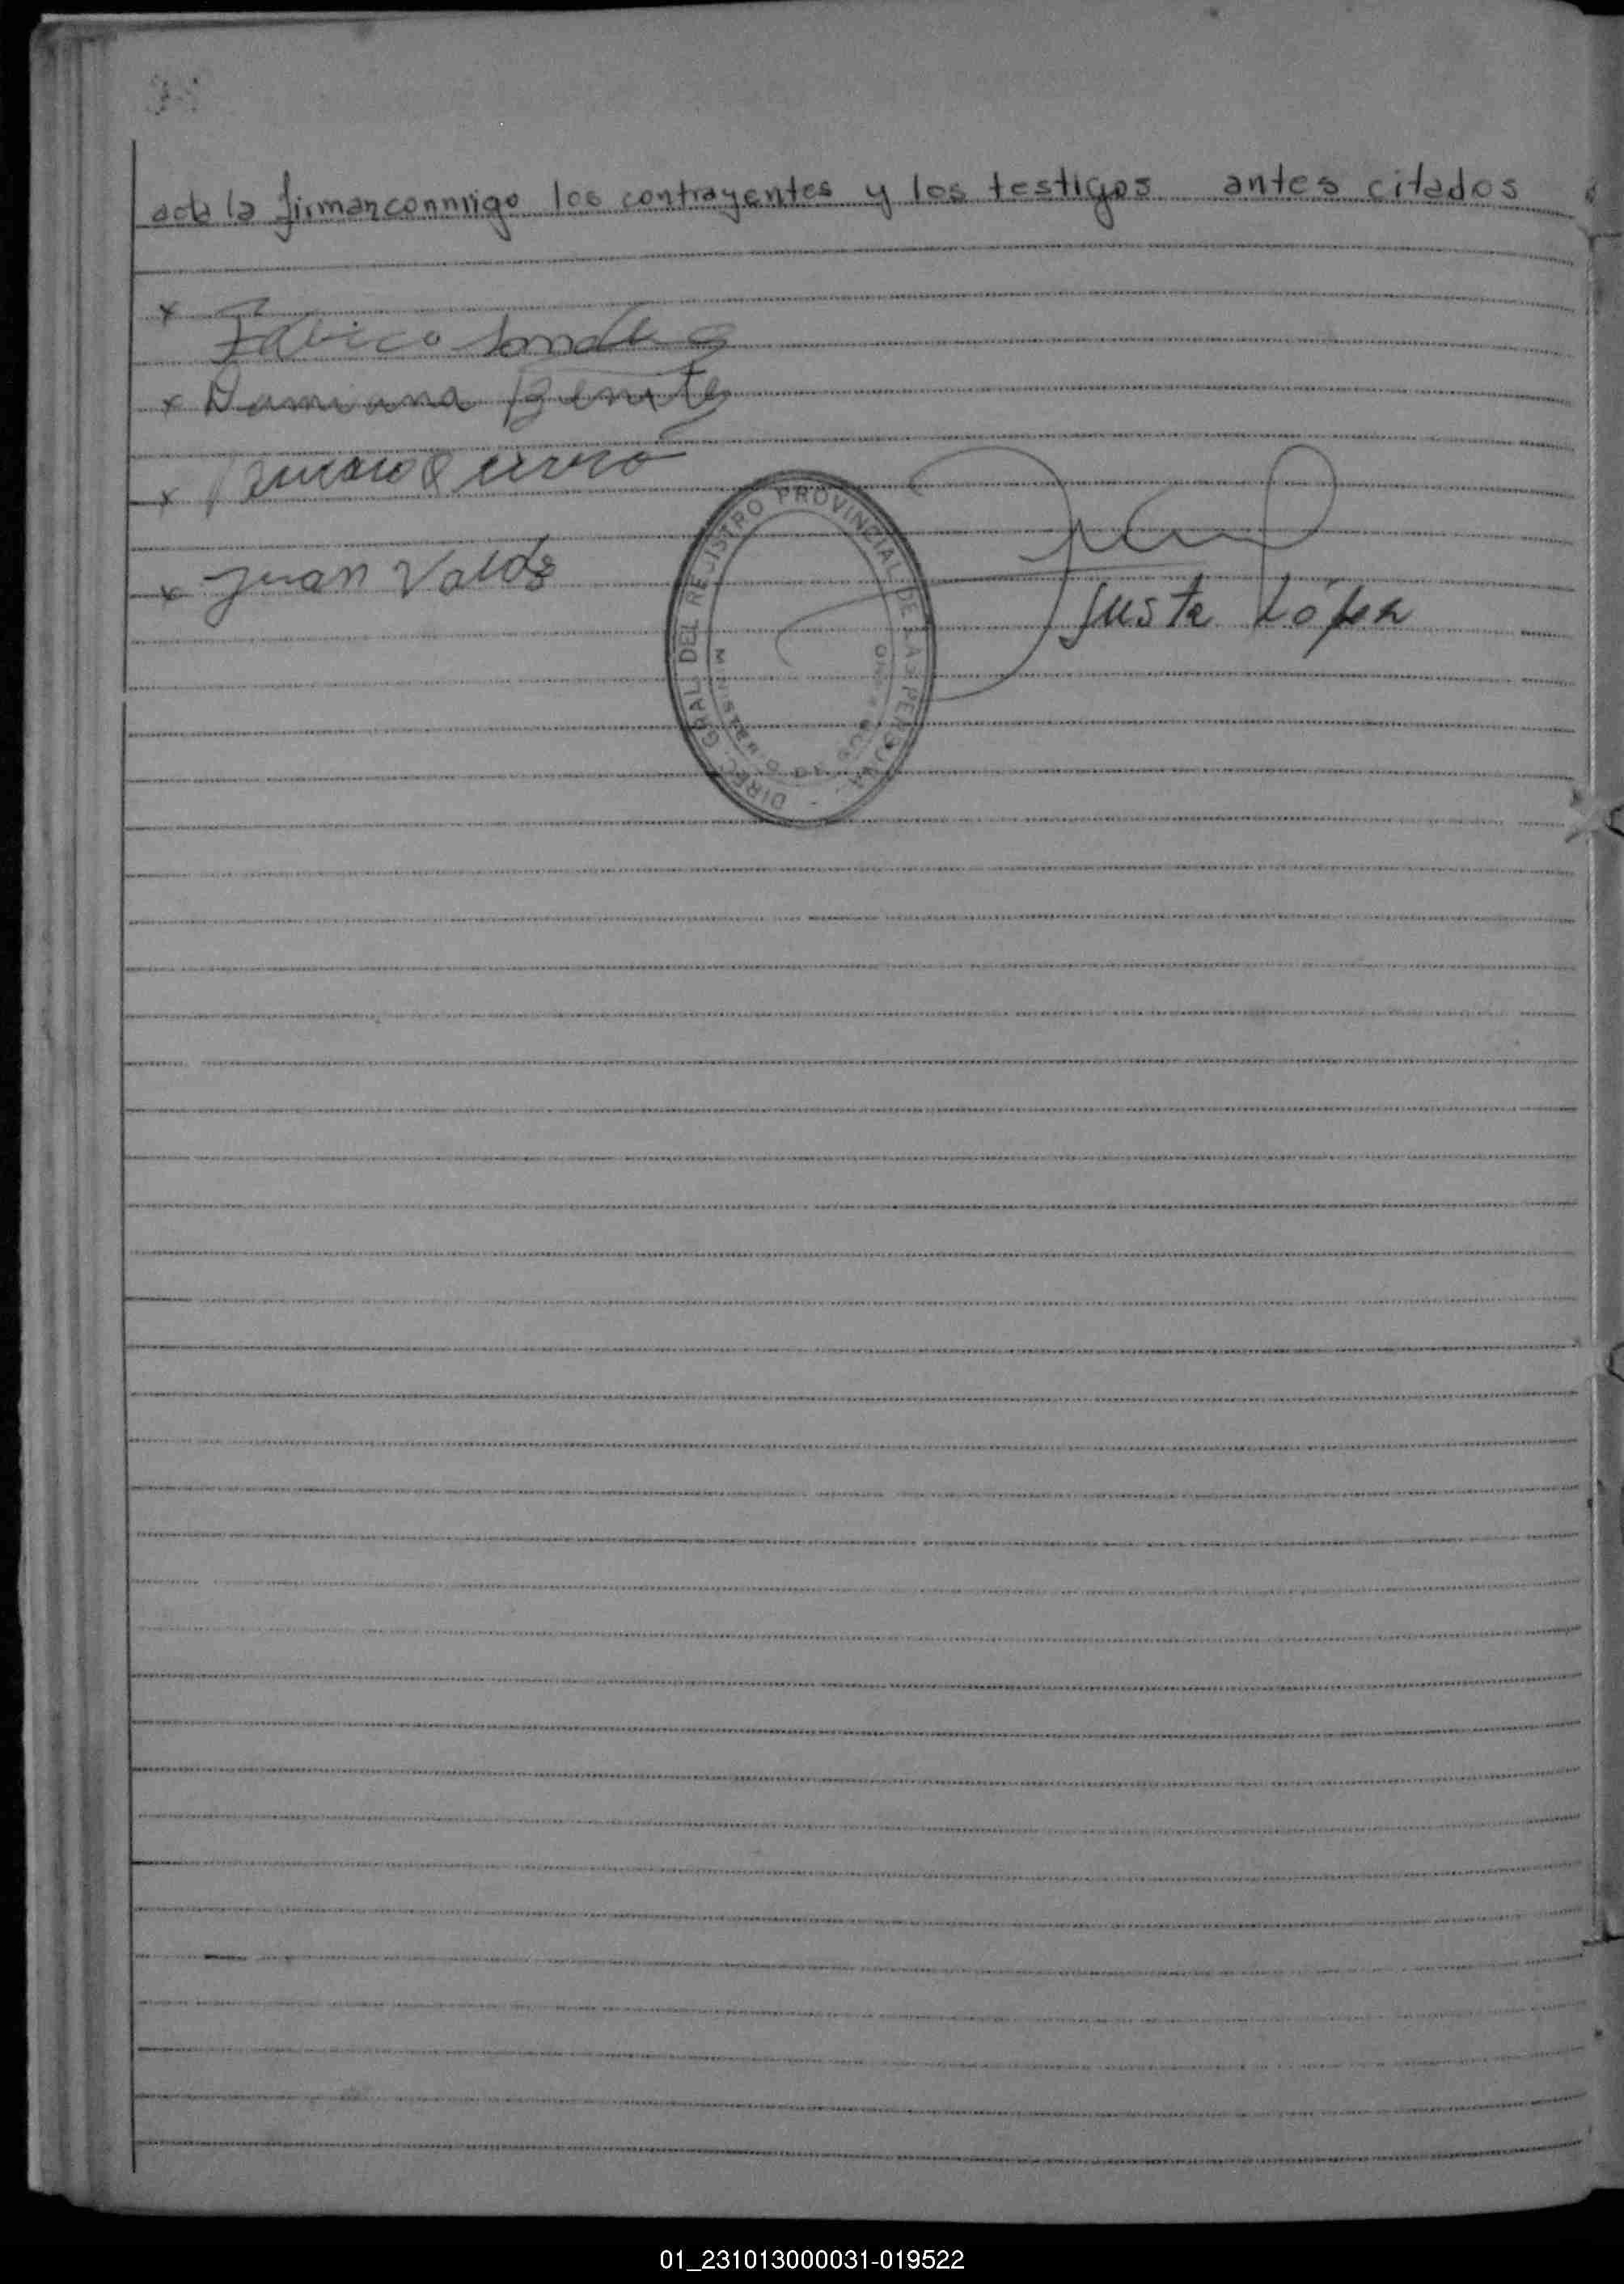 acta la firman conmigo los contrayentes y los testigos antes citados
x
x Damiana Benitez
x
x Juan Valdz
DIREC. GRAL. DEL REJISTRO PROVINCIAL DE LAS PERSONAS
Justa López
01_231013000031-019522